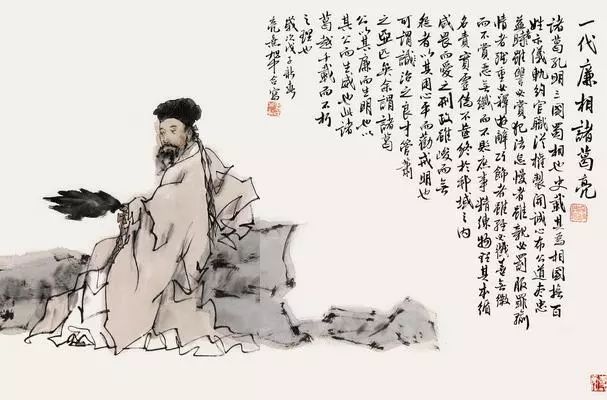 一代廉相諸葛亮
諸葛孔明三國蜀相也史載其為相國撫百
姓示儀軌約官職從權製開誠心布公道盡忠
益時者雖讎必賞犯法怠慢者雖親必罰服罪輸
情者雖重必釋游辭巧飾者雖輕必戮善無微
而不賞惡無纖而不貶庶事精練物理其本循
名責實虛偽不齒終於邦域之內
咸畏而愛之刑政雖峻而無
怨者以其用心平而勸戒明也
可謂識治之良才管蕭
之亞匹矣余謂諸葛
公以其廉而生明也以
其公而生威也此諸
葛越千載而不朽
之理也
歲次戊子